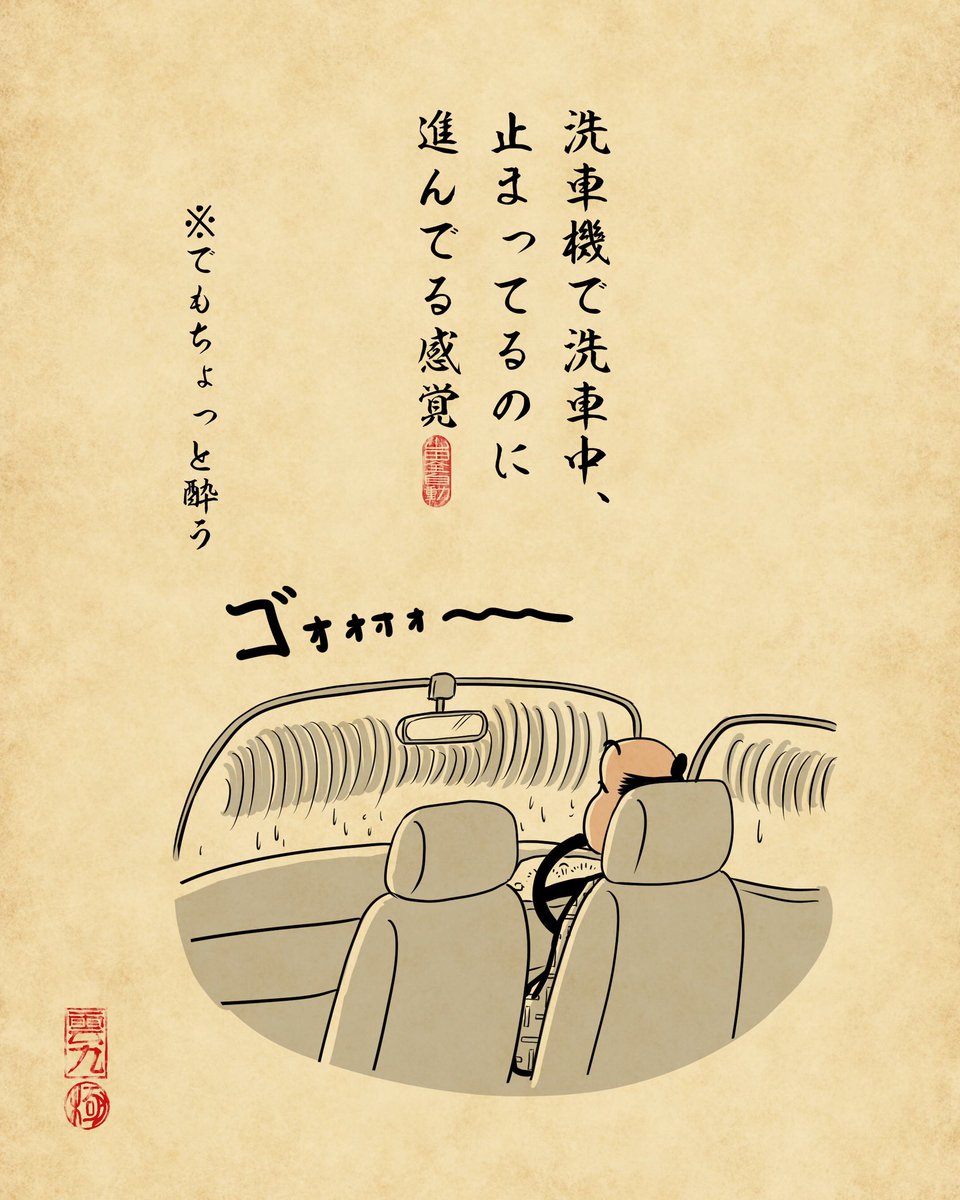 洗車機で洗車中、
止まってるのに
進んでる感覚
※でもちょっと酔う
ゴォォォォ〜